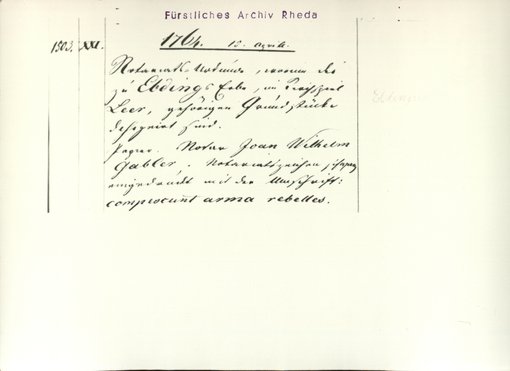 Fürstliches Archiv Rheda
1503. XXI. 1764. 12. April.
Notariats-Urkunde, worin die
zu Ebdings Erbe, im Kirchspiel
Leer, gehörigen Grundstücke
designirt sind.
Papier. Notar Joan Wilhelm
Gabler. Notariatszeichen
eingedruckt mit der Umschrift:
compescunt arma rebelles.